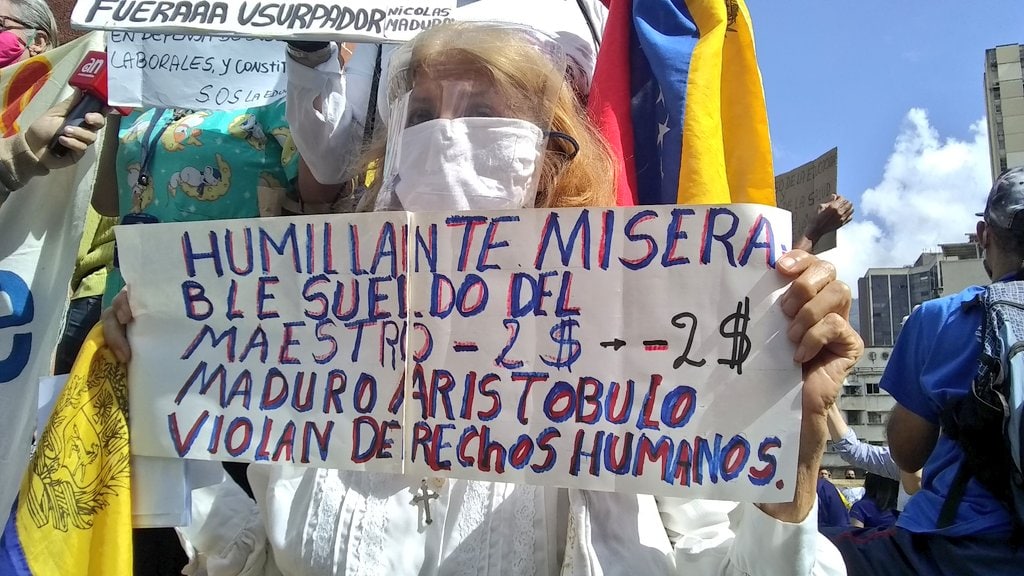 FUERAAA USURPADOR NICOLAS
MADURO
EN DEFENSA
LABORALES, Y CONSTI
SOS LA EDU
an
HUMILLANTE MISERA.
BLE SUELDO DEL
MAESTRO - 2$ → - 2$
MADURO ARISTOBULO
VIOLAN DERECHOS HUMANOS.
e